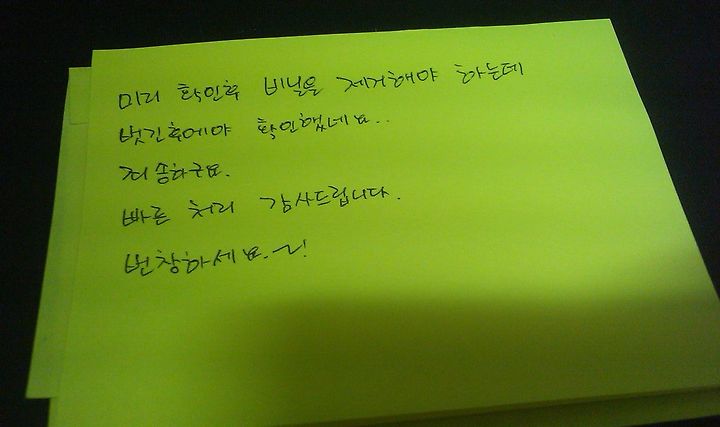 미리 확인후 비닐을 제거해야 하는데
벗긴후에야 확인했네요..
죄송하구요.
빠른 처리 감사드립니다.
번창하세요.~!